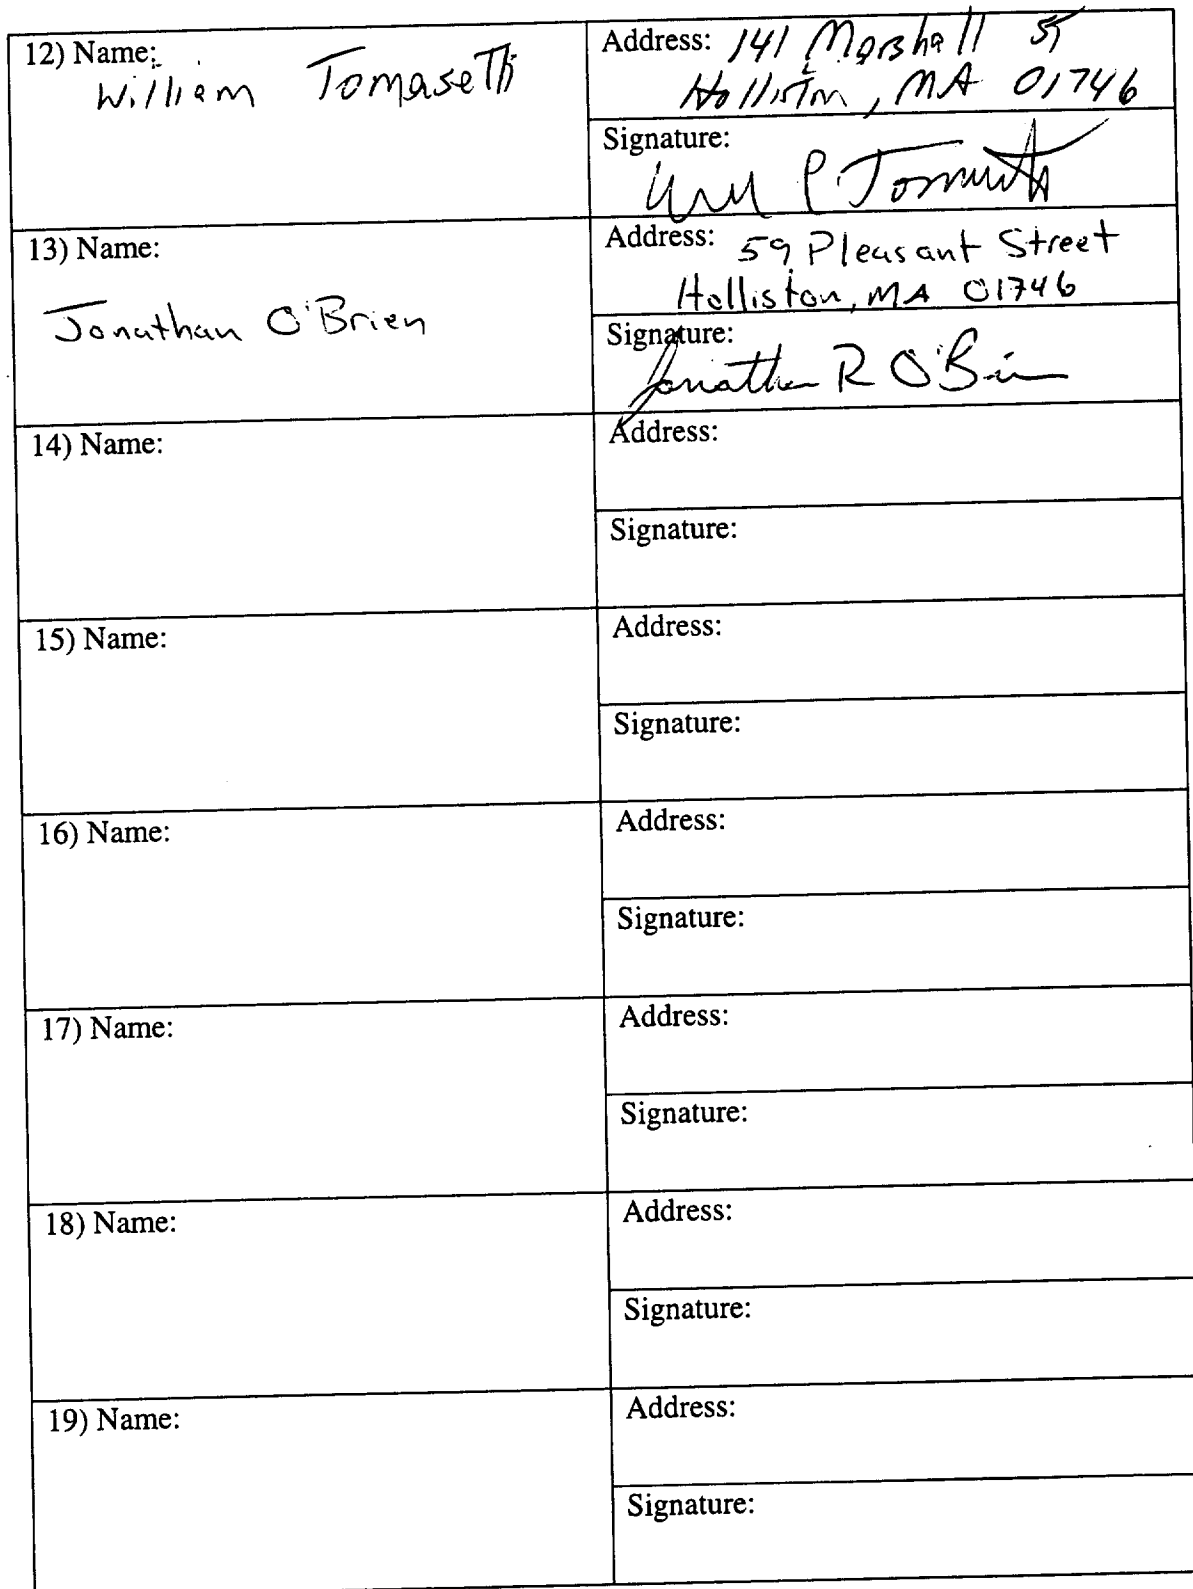 12) Name:
William Tomasetti
Address: 141 Marshall St
Holliston, MA 01746
Signature:
13) Name:
Jonathan O'Brien
Address: 59 Pleasant Street
Holliston, MA 01746
Signature:
Jonathan R O'Brien
14) Name:
Address:
Signature:
15) Name:
Address:
Signature:
16) Name:
Address:
Signature:
17) Name:
Address:
Signature:
18) Name:
Address:
Signature:
19) Name:
Address:
Signature: